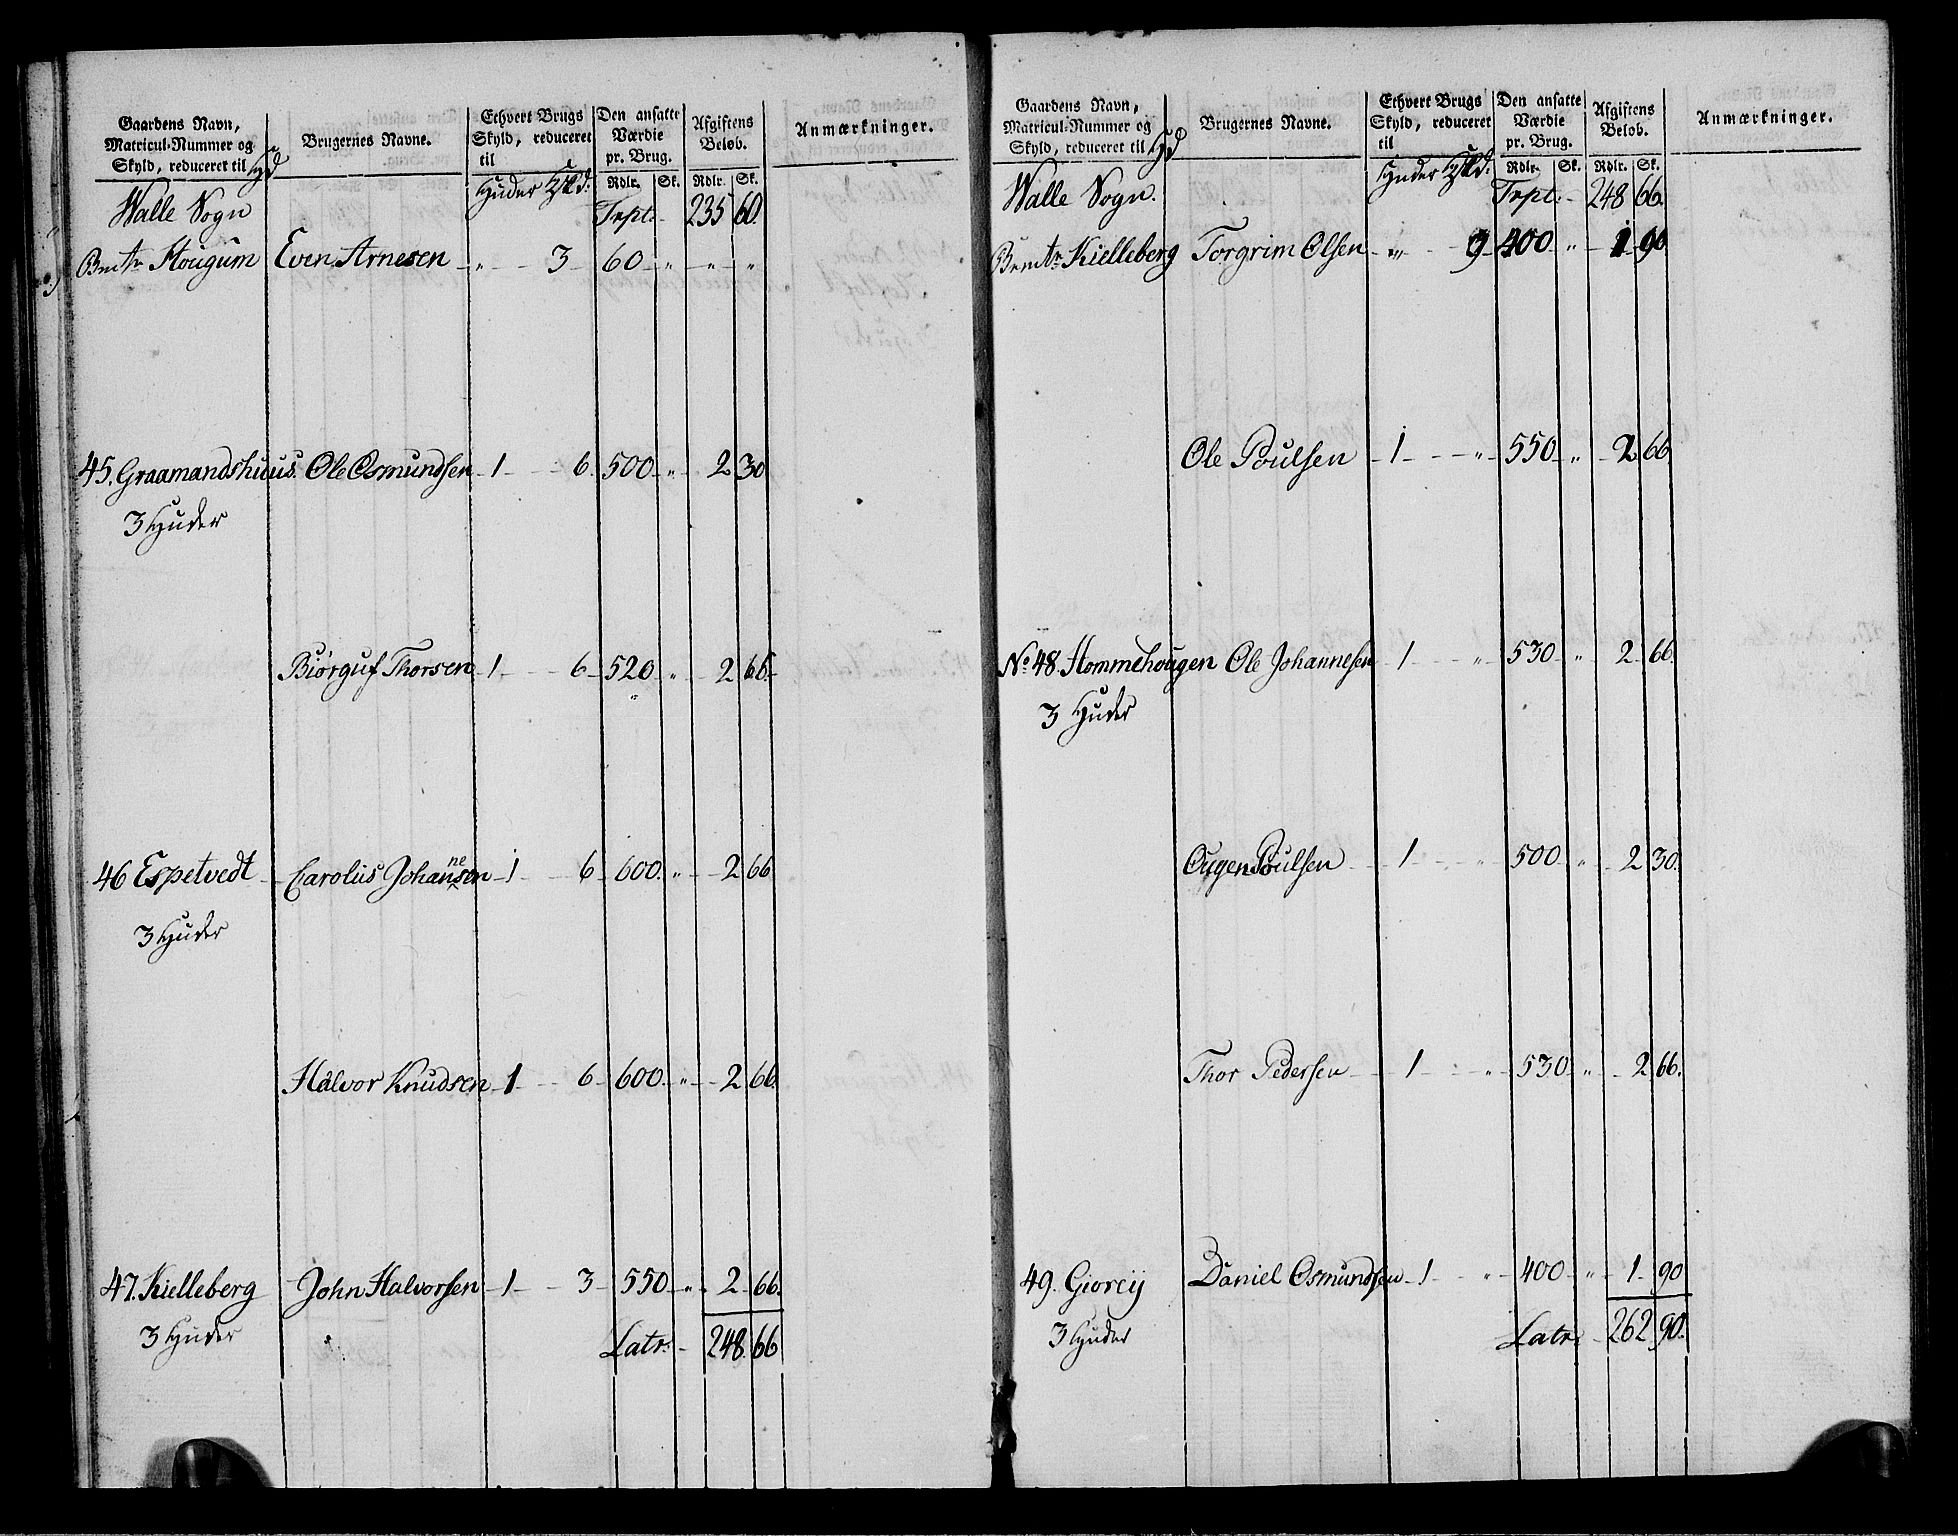 Gaardens Navn, Matricul-Nummer og Skyld, reduceret til
Brugernes Navne.
Ethvert Brugs Skyld, reduceret til
Den ansatte Værdie pr. Brug.
Afgiftens Beløb.
Anmærkninger.
Huder
Rdlr. Sk. Rdlr. Sk.
Walle Sogn Trpt. 235 60.
Hougum Even Arnesen „ 3 60 „ „ „
45. Graamandshuus. Ole Osmundsen 1 6. 500 „ 2 30
3 Huder
Biørguf Thorsen 1 6 520 „ 2 66.
46 Espetvedt Carolus Johannesen 1 6 600. „ 2 66
3 Huder
Halvor Knudsen 1 6 600. „ 2 66.
47. Kielleberg John Halvorsen 1 3 550 „ 2 66.
3 Huder
Latr. 248. 66
Gaardens Navn, Matricul-Nummer og Skyld, reduceret til
Brugernes Navne.
Ethvert Brugs Skyld, reduceret til
Den ansatte Værdie pr. Brug.
Afgiftens Beløb.
Anmærkninger.
Huder
Rdlr. Sk. Rdlr. Sk.
Walle Sogn. Trpt. 248 66.
Kielleberg Torgrim Olsen „ 9 400 „ 1 90
Ole Poulsen 1 „ 550 „ 2 66.
No. 48. Hommehougen Ole Johannesen 1 „ 530 „ 2 66.
3 Huder
Poulsen 1 „ 500 „ 2 30.
Thor Pedersen 1 „ 530 „ 2 66.
49. Daniel Osmundsen 1 „ 400 „ 1 90
3 Huder
Latr. 262 90.